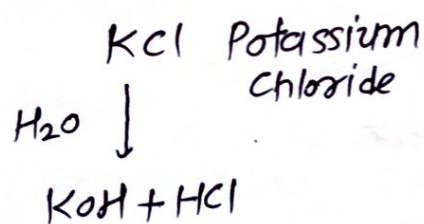 KCl Potassium
Chloride
H2O
KOH + HCl